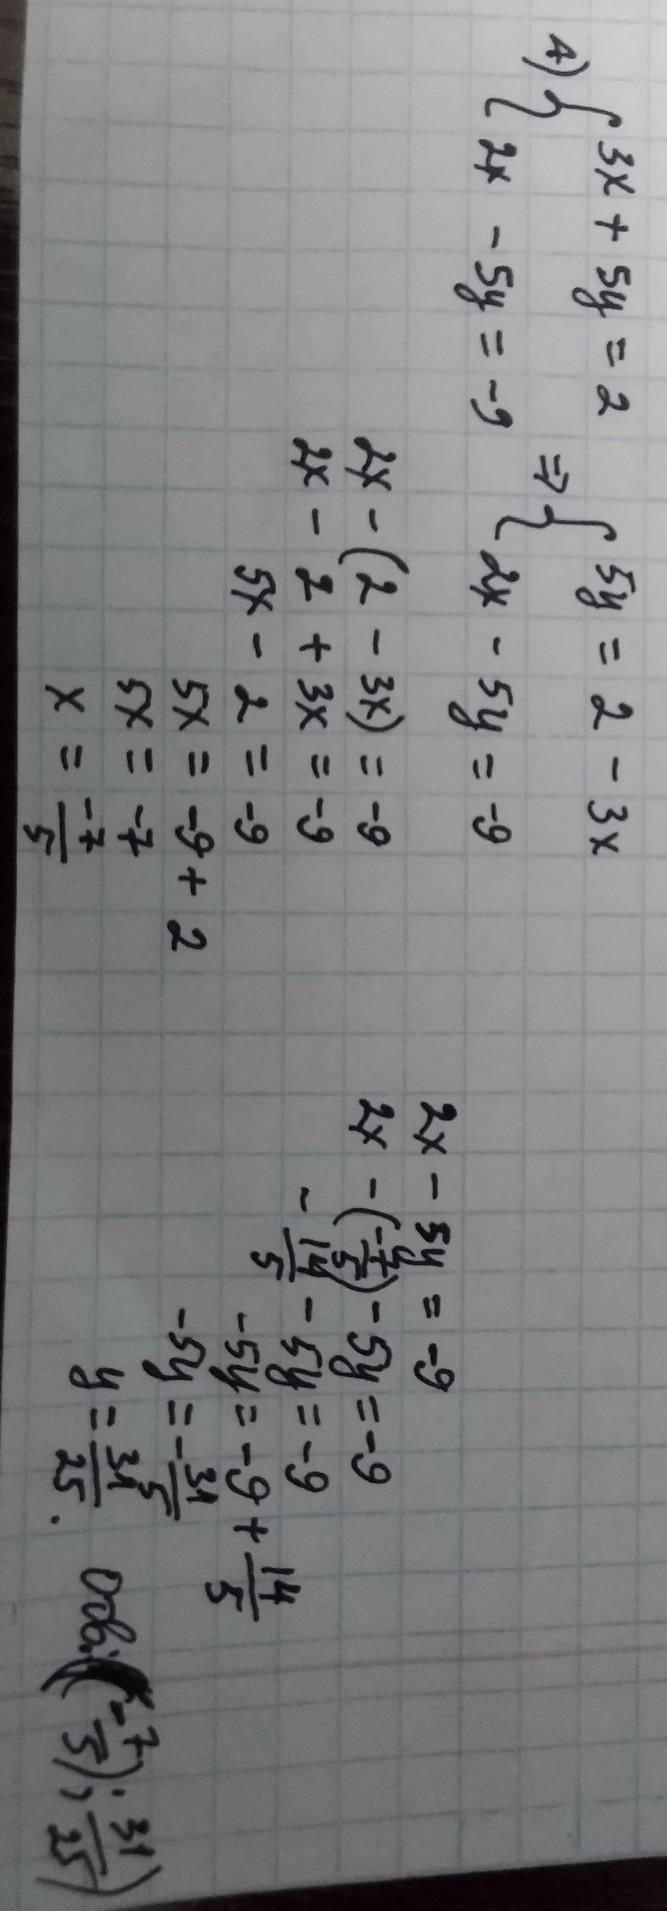 4) { 3x + 5y = 2
2x - 5y = -9
⇒ { 5y = 2 - 3x
2x - 5y = -9
2x - (2 - 3x) = -9
2x - 2 + 3x = -9
5x - 2 = -9
5x = -9 + 2
5x = -7
x = -7/5
2x - 5y = -9
2x - (-7/5) - 5y = -9
- 14/5 - 5y = -9
-5y = -9 + 14/5
-5y = - 31/5
y = 31/25.
(-7/5); 31/25)